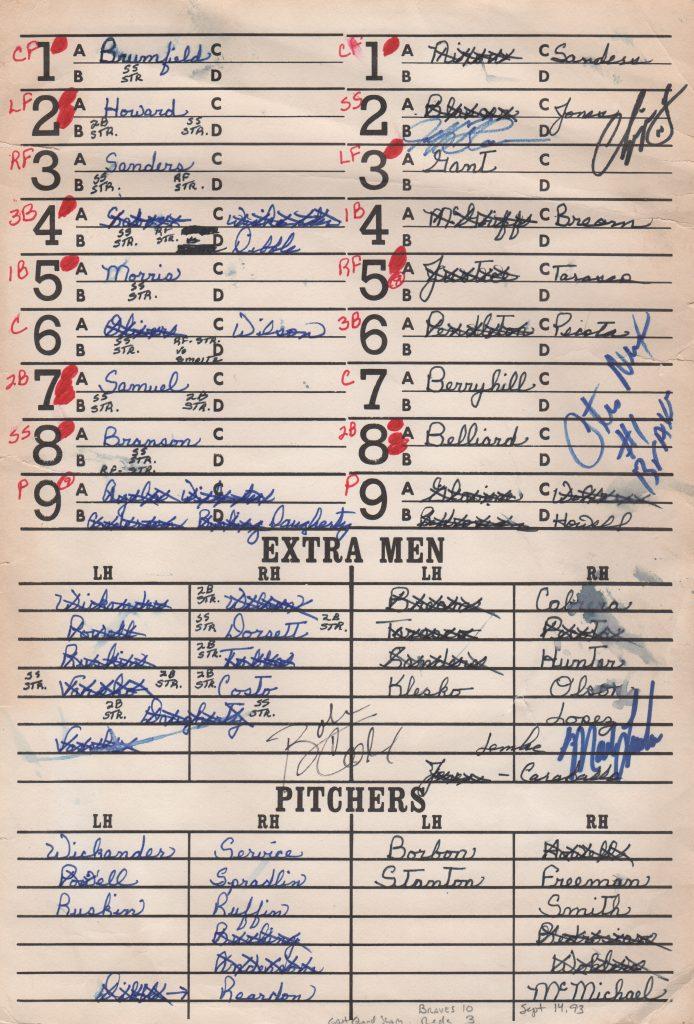 CF 1 A Brumfield C
B SS STR. D
LF 2 A Howard C
B 2B STR. SS STR. D
RF 3 A Sanders C
B SS STR. RF STR. D
3B 4 A C
B SS STR. RF STR. vs D Dibble
1B 5 A Morris C
B SS STR. D
C 6 A Oliver C Wilson
B SS STR. RF-STR. vs Smoltz D
2B 7 A Samuel C
B SS STR. 2B STR. D
SS 8 A Branson C
B SS STR. RF-STR. D
P 9 A C
B Daugherty D
CF 1 A Nixon C Sanders
B D
SS 2 A Blauser C Jones
B D
LF 3 A Gant C
B D
1B 4 A McGriff C Bream
B D
RF 5 A Justice C Tarasco
B D
3B 6 A Pendleton C Pecota
B D
C 7 A Berryhill C
B D
2B 8 A Belliard C
B D
P 9 A Glavine C
B D Howell
#1 BRAVES
EXTRA MEN
LH RH LH RH
Wickander 2B STR. Wilson Cabrera
Powell SS STR. Dorsett 2B STR. Tarasco Pecota
Ruskin 2B STR. Sanders Hunter
SS STR. 2B STR. 2B STR. Costo Klesko Olson
2B STR. Daugherty SS STR. Lopez
Lemke
Jones - Caraballo
PITCHERS
LH RH LH RH
Wickander Service Borbon
Powell Spradlin Stanton Freeman
Ruskin Ruffin Smith
Bushing Bedrosian
Anderson Wohlers
Dibble → Reardon McMichael
BRAVES 10 Sept 14, 93
Reds 3